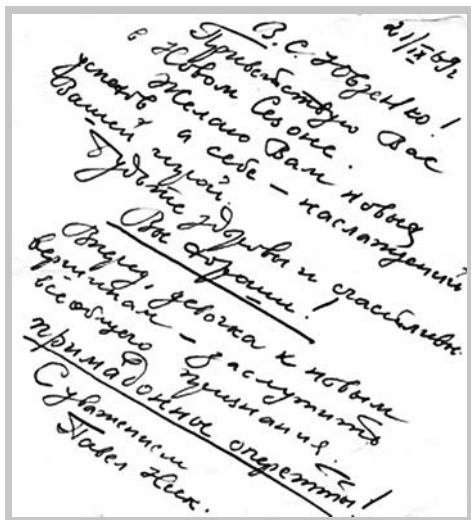 21/IX 69г.
В. С.
Приветствую Вас
в Новом Сезоне.
Желаю Вам новых
успехов, а себе – наслаждений
Вашей игрой.
Будьте здоровы и счастливы.
Вы хороши!
Вперед, девочка к новым
вершинам – заслужить
всеобщего признания
примадонны оперетты!
С уважением
Павел Ник.